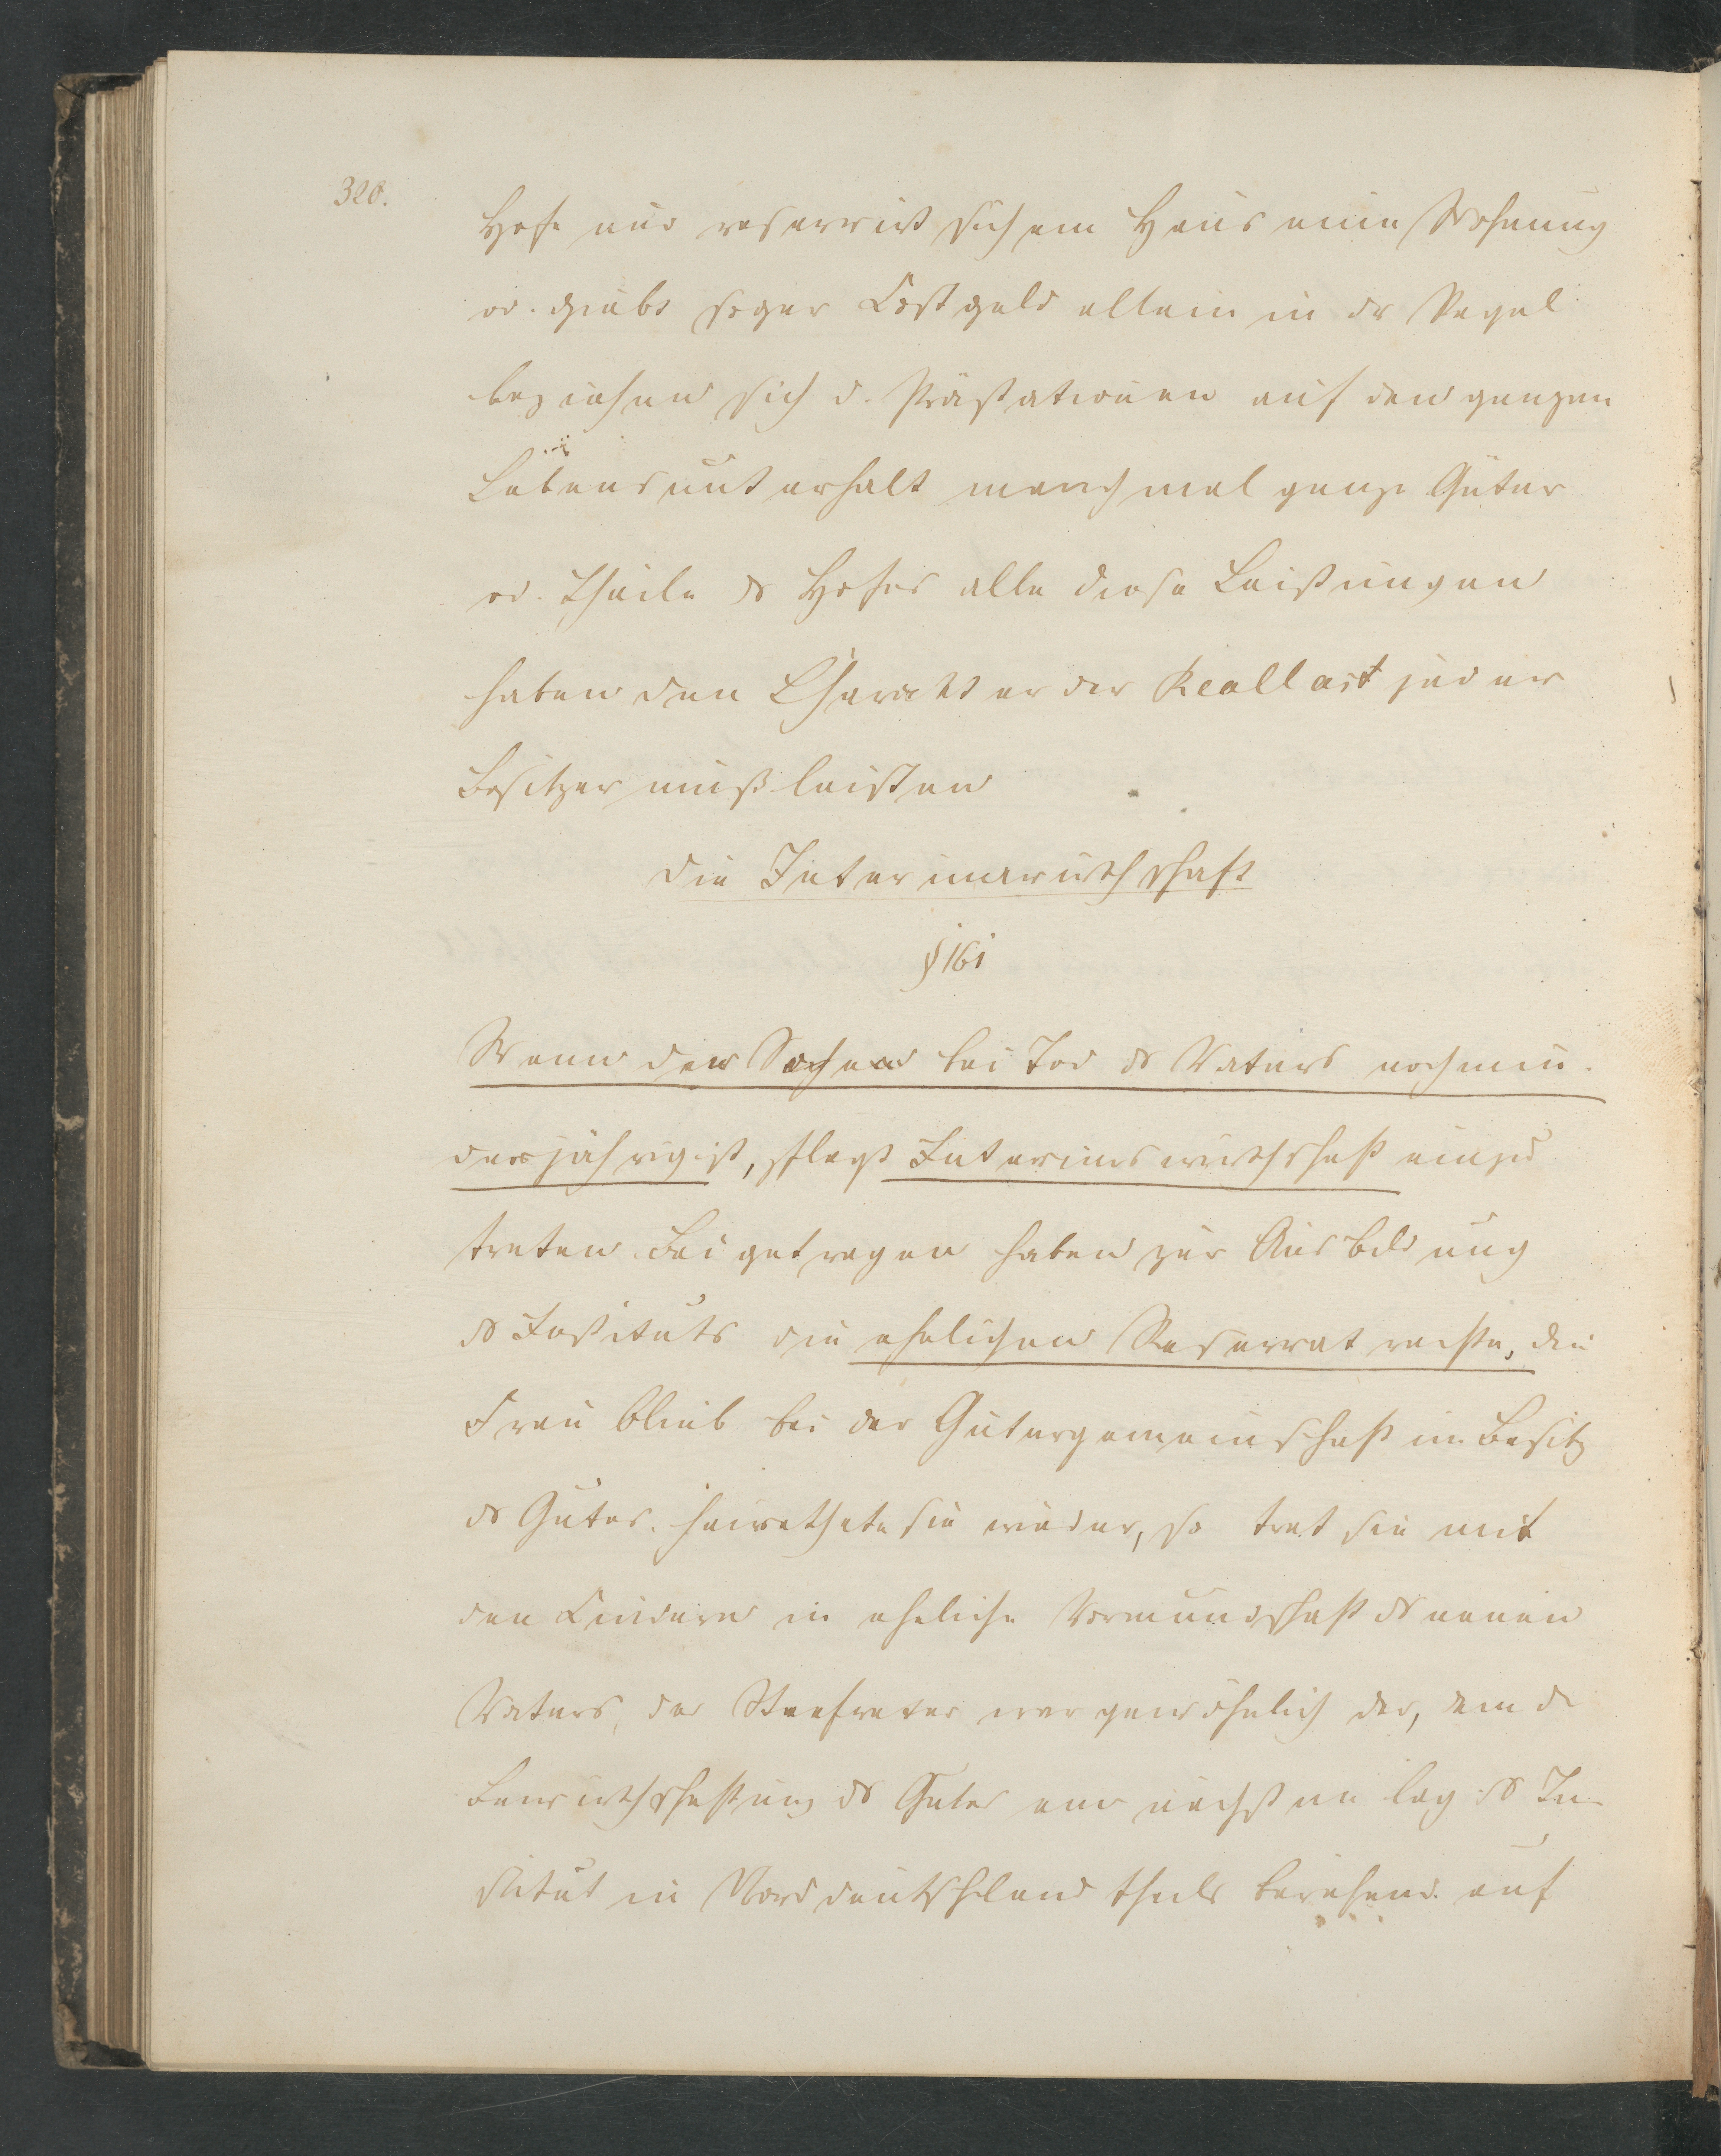 320.
Hofe und reservirt sich ein Haus eine Wohnung
od. giebt sogar Kostgeld allein in der Regel
beziehen sich d. Prästationen auf den ganzen
Lebensunterhalt manchmal ganze Güter
od. Theile ds Hofes alle diese Leistungen
haben den Charakter der Reallast jeder
Besitzer muß leisten
Die Interimswirthschaft
§ 161
Wenn der bei Tod ds Vaters noch min
derjährig ist, pflegt Interimswirthschaft einzu
treten. Beigetragen haben zur Ausbildung
ds Instituts die ehelichen Reservatrechte, die
Frau blieb bei der Gütergemeinschaft im Besitz
ds Gutes. heirathete sie wieder, so trat sie mit
den Kindern in eheliche Vormundschaft ds neuen
Vaters, der Stiefvater war gewöhnlich der, dem d
Bewirthschaftung ds Gutes am nächsten lag ds In
stitut in Norddeutschland theils beruhend auf